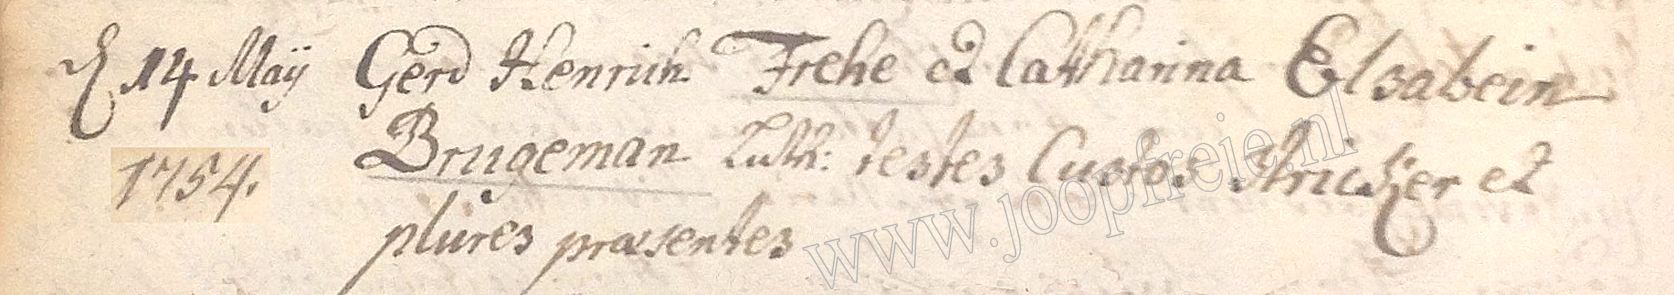 d 14 Maÿ Gerd Henrich Frehe et Catharina Elsabein
1754. Brugeman Luth: testes Custos Stricker et
plures praesentes
www.joopfreie.nl